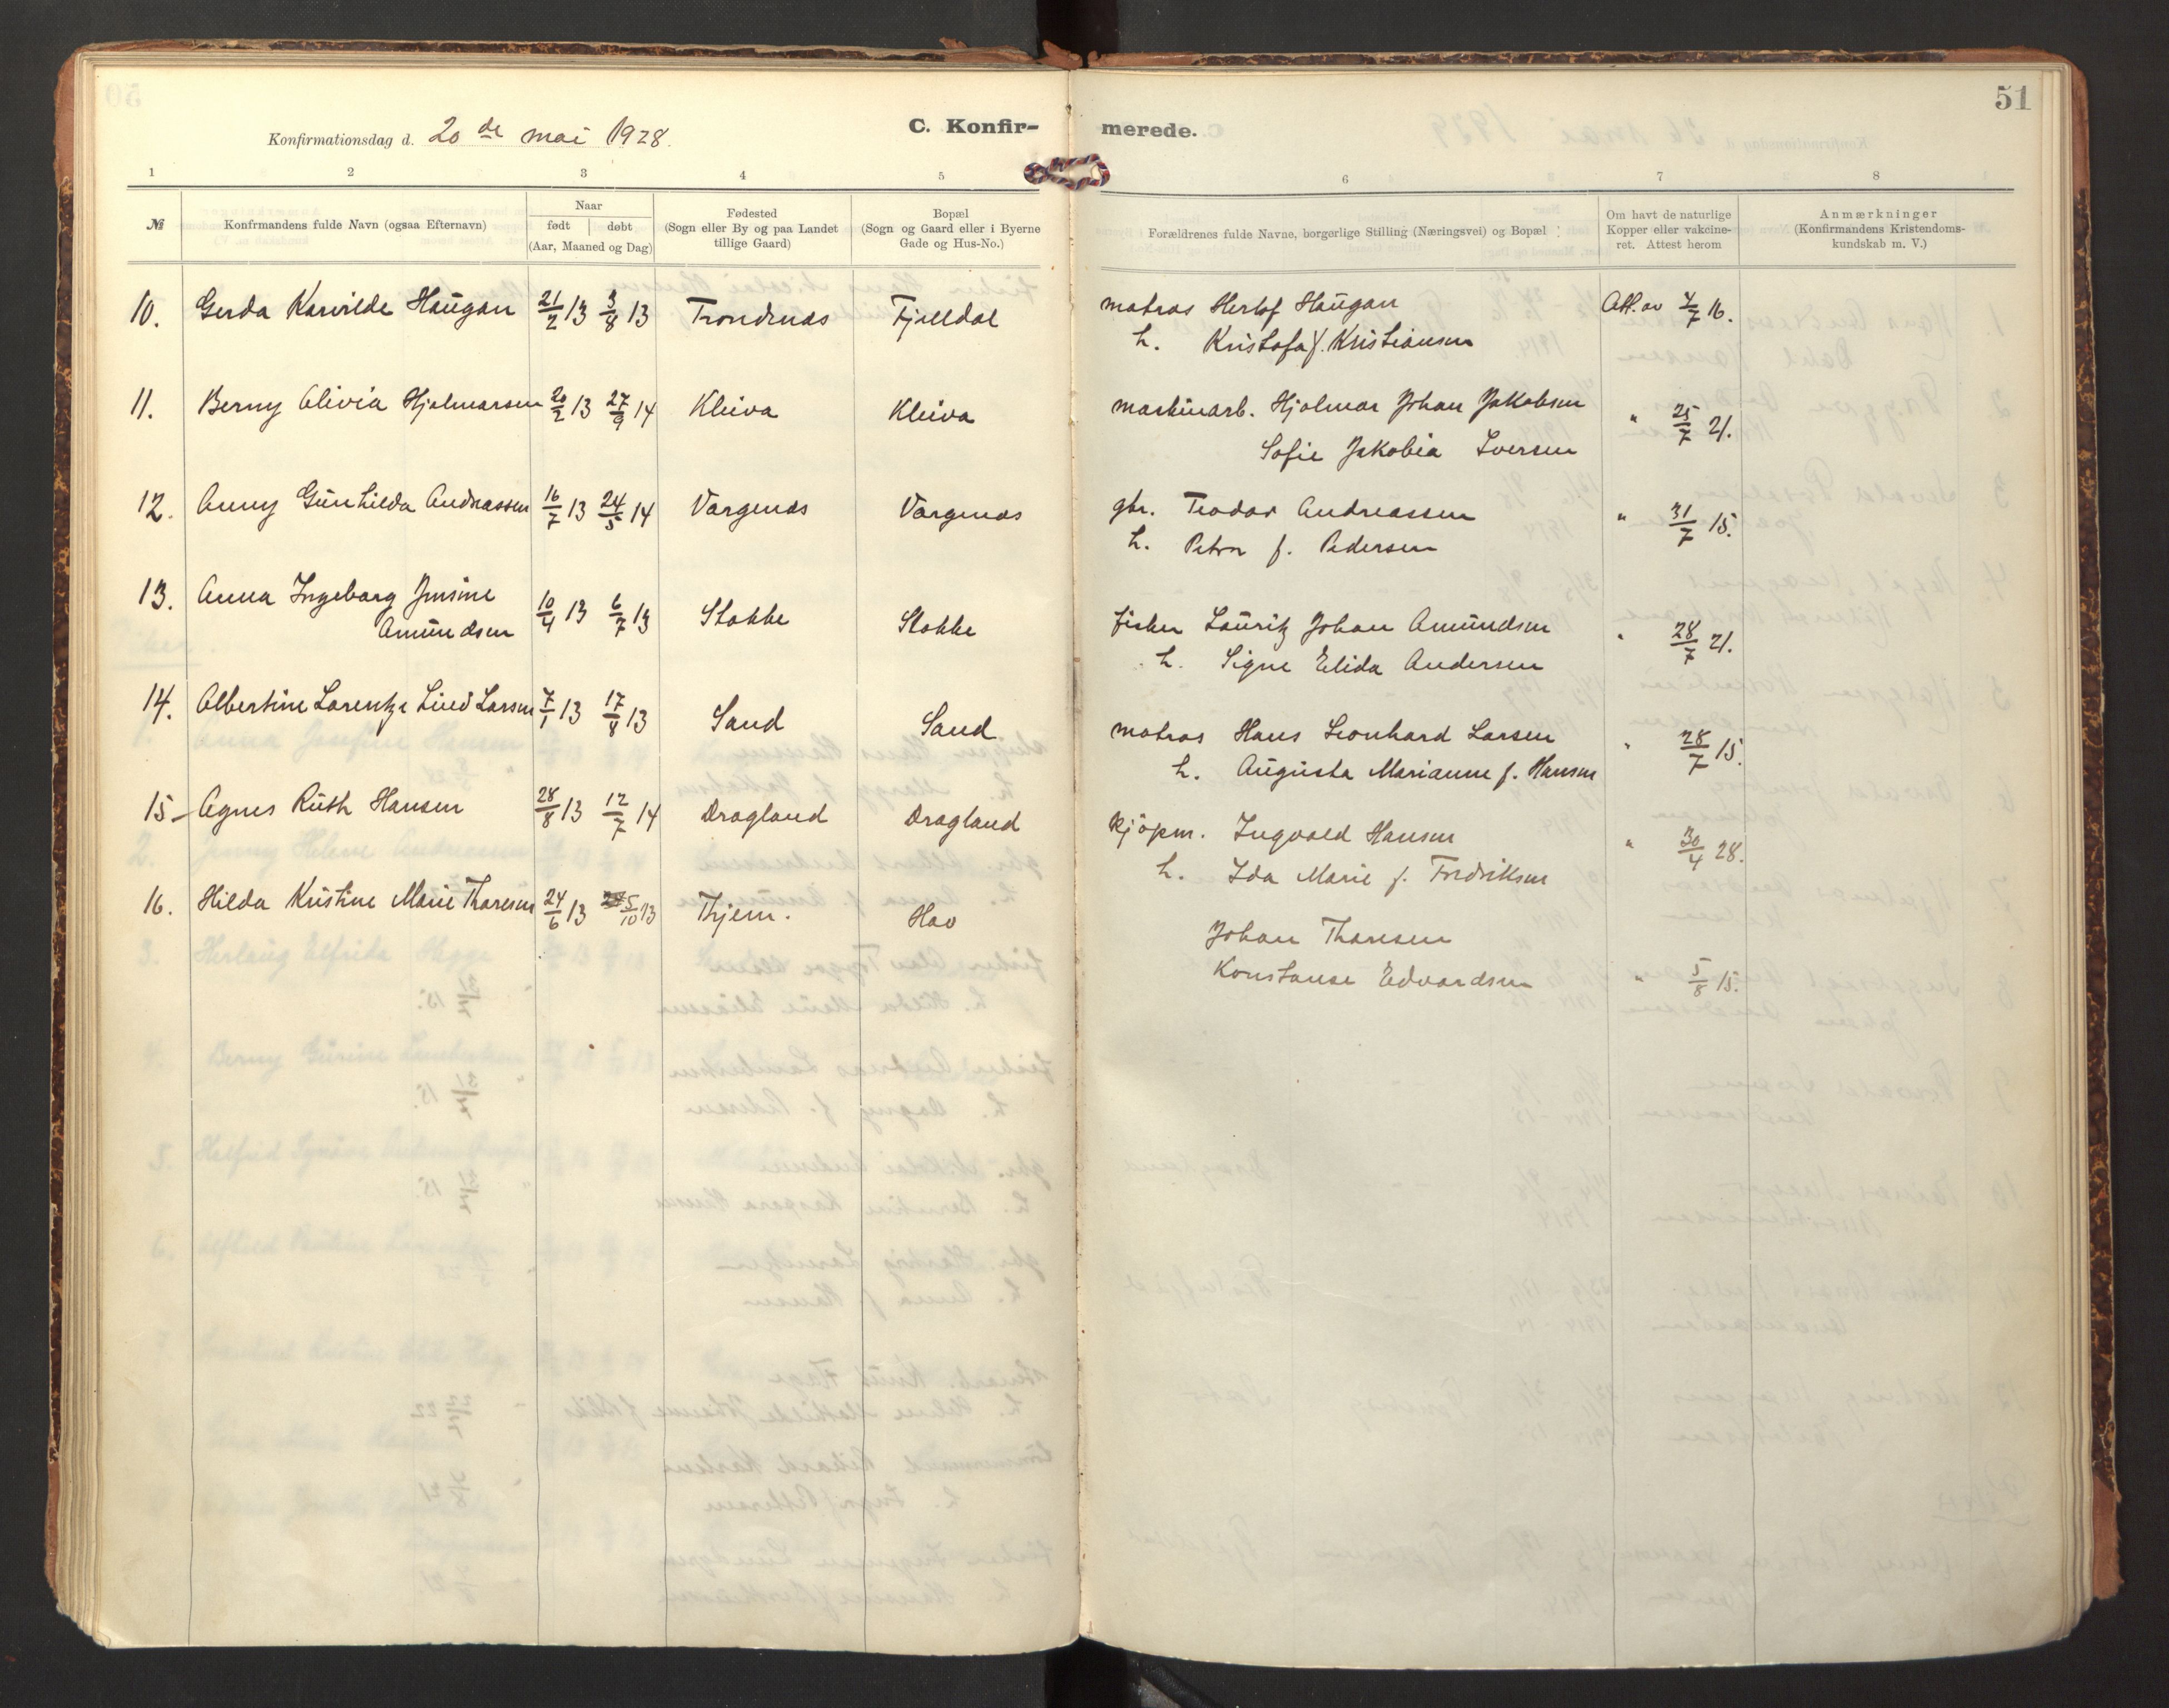 51
Konfirmationsdag d. 20 de mai 1928.
C. Konfirmerede.
1 2 3 4 5 6 7 8
№
Konfirmandens fulde Navn (ogsaa Efternavn)
Naar
født | døbt
(Aar, Maaned og Dag)
Fødested
(Sogn eller By og paa Landet
tillige Gaard)
Bopæl
(Sogn og Gaard eller i Byerne
Gade og Hus-No.)
Forældrenes fulde Navne, borgerlige Stilling (Næringsvei) og Bopæl
Om havt de naturlige
Kopper eller vakcine-
ret. Attest herom
Anmærkninger
(Konfirmandens Kristendoms-
kundskab m. V.)
10. Gerda Karvilde Haugan 21/2 13 3/8 13 Trondenas Fjelldal matros Herlof Haugan Att. av 4/7 16.
h. Kristofa f. Kristiansen
11. Berny Olivia Hjalmarsen 20/2 13 27/9 14 Kleiva Kleiva maskinarb. Hjalmar Johan Jakobsen " 25/7 21.
Sofie Jakobia Iversen
12. Anny Gunhilda Andreassen 16/7 13 24/5 14 Vargenas Vargenas gbr. Teodor Andreassen " 31/7 15.
h. Petra f. Pedersen
13. Anna Ingeborg Jensine
Amundsen 10/4 13 6/7 13 Stokke Stokke fisker Lauritz Johan Amundsen " 28/7 21.
h. Signe Elida Andersen
14. Albertine Lorentze Lind Larsen 7/1 13 17/8 13 Sand Sand matros Hans Leonhard Larsen " 28/7 15.
h. Augusta Marianne f. Hansen
15 Agnes Ruth Hansen 28/8 13 12/7 14 Dragland Dragland kjøpm. Ingvald Hansen " 30/4 28.
h. Ida Marie f. Fredriksen
16. Hilda Kristine Marie Thoresen 24/6 13 5/10 13 Thjem. Hav Johan Thoresen
Konstanse Edvardsen " 5/8 15.